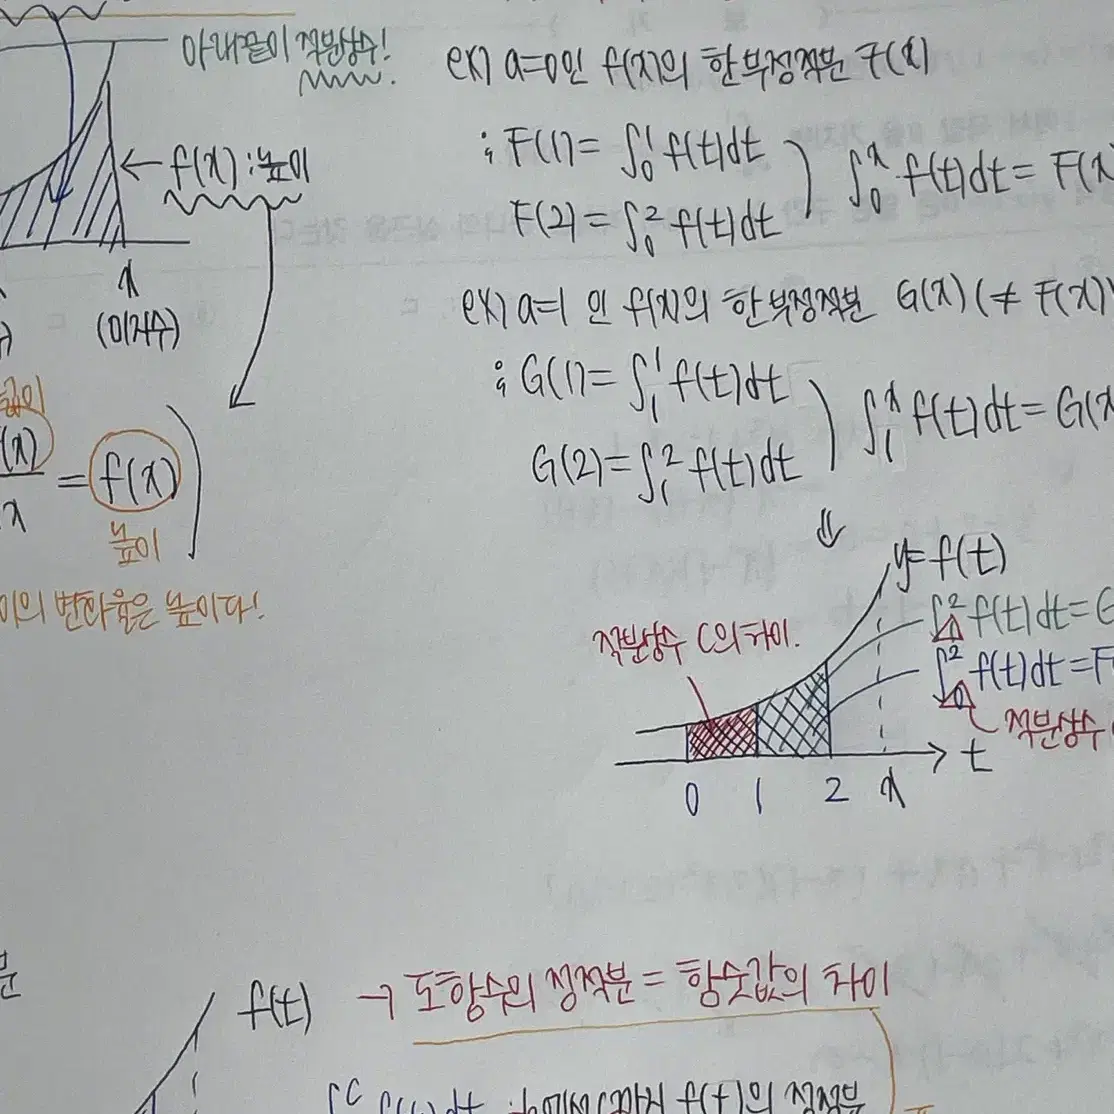 아래끝이 적분상수!
← f(x) : 높이
x
(미지수)
= f(x)
높이
이의 변화율은 높이다!
ex) a=0인 f(x)의 한 부정적분 F(x)
; F(1) = ∫₀¹ f(t)dt
F(2) = ∫₀² f(t)dt
∫₀ˣ f(t)dt = F(x
ex) a=1 인 f(x)의 한 부정적분 G(x) (≠ F(x))
; G(1) = ∫₁¹ f(t)dt
G(2) = ∫₁² f(t)dt
∫₁ˣ f(t)dt = G(x
⇓
y=f(t)
적분상수 C의 차이.
∫₁² f(t)dt = G
∫₀² f(t)dt = F
적분상수
0 1 2 x t
f(t) → 도함수의 정적분 = 함숫값의 차이
f(t)의 정적분